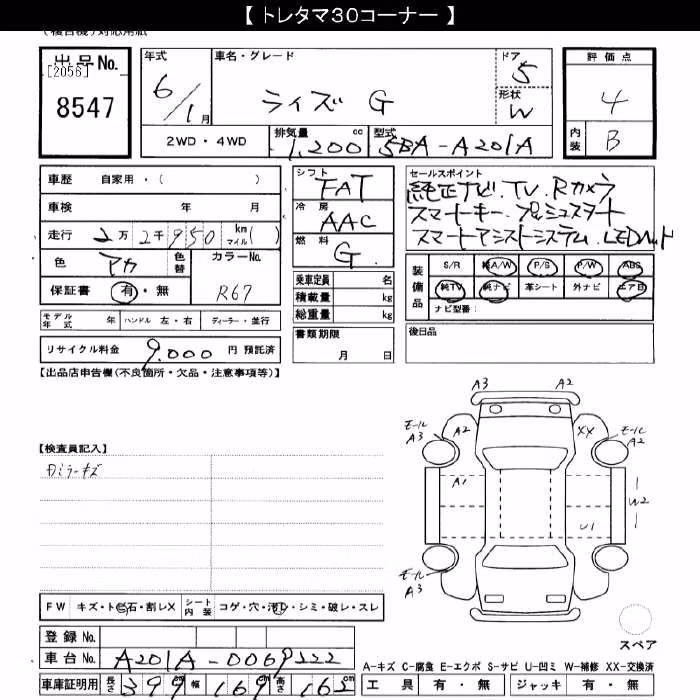 【 トレタマ30コーナー 】
(複合機)対応用紙
出品No.
[2056]
8547
年式
6/1月
車名・グレード
ライズ G
ドア
5
形状
W
2WD・4WD
排気量 cc
1,200
型式
5BA-A201A
評価点
4
内装
B
車歴 自家用・( )
車検 年 月
走行 2万2千950 km マイル( )
色 アカ 色替
カラーNo.
R67
保証書 有・無
モデル年式 年 ハンドル 左・右 ディーラー・並行
リサイクル料金 9,000 円 預託済
シフト
FAT
冷房
AAC
燃料
G
乗車定員 名
積載量 kg
総重量 kg
書類期限
月 日
セールスポイント
純正ナビ.TV.Rカメラ
スマートキー.プッシュスタート
スマートアシストシステム.LEDヘッド
装備品
S/R 純A/W P/S P/W ABS
純TV 純ナビ 革シート 外ナビ エアB
ナビ型番:
後日品
【出品店申告欄(不良箇所・欠品・注意事項等)】
【検査員記入】
カミラーキズ
A3 A2
モール A3 A2 XX モール A2
A1
W2
U1
モール A3
スペア
FW キズ・ト石・割レX シート内装 コゲ・穴・汚レ・シミ・破レ・スレ
登録No.
車台No. A201A-0069222
車庫証明用 長さ 399cm 幅 169cm 高さ 162cm
A-キズ C-腐食 E-エクボ S-サビ U-凹ミ W-補修 XX-交換済
工具 有・無 ジャッキ 有・無